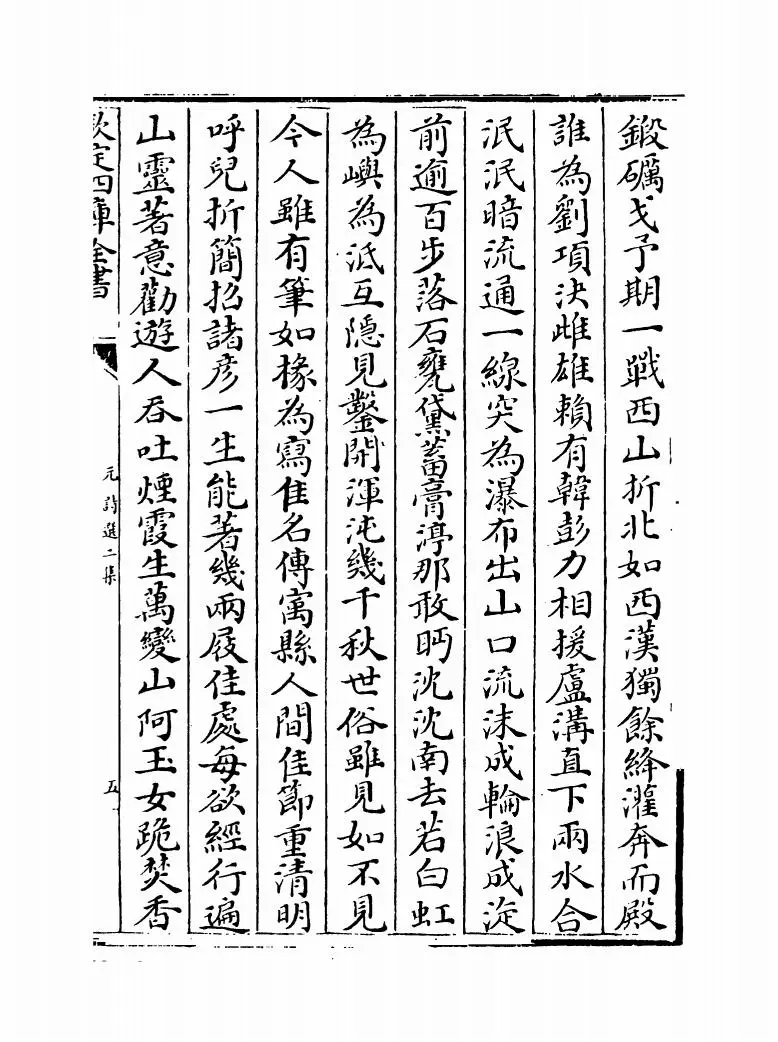 鍛礪戈予期一戰西山折北如西漢獨餘絳灌奔而殿
誰為劉項決雌雄賴有韓彭力相援盧溝直下兩水合
泯泯暗流通一線突為瀑布出山口流沫成輪浪成淀
前逾百步落石甕黛蓄膏渟那敢眄沈沈南去若白虹
為嶼為泜互隱見鑿開渾沌幾千秋世俗雖見如不見
今人雖有筆如椽為寫佳名傳寓縣人間佳節重清明
呼兒折簡招諸彥一生能著幾兩屐佳處每欲經行遍
山靈著意勸遊人吞吐煙霞生萬變山阿玉女跪焚香
欽定四庫全書
元詩選二集
五